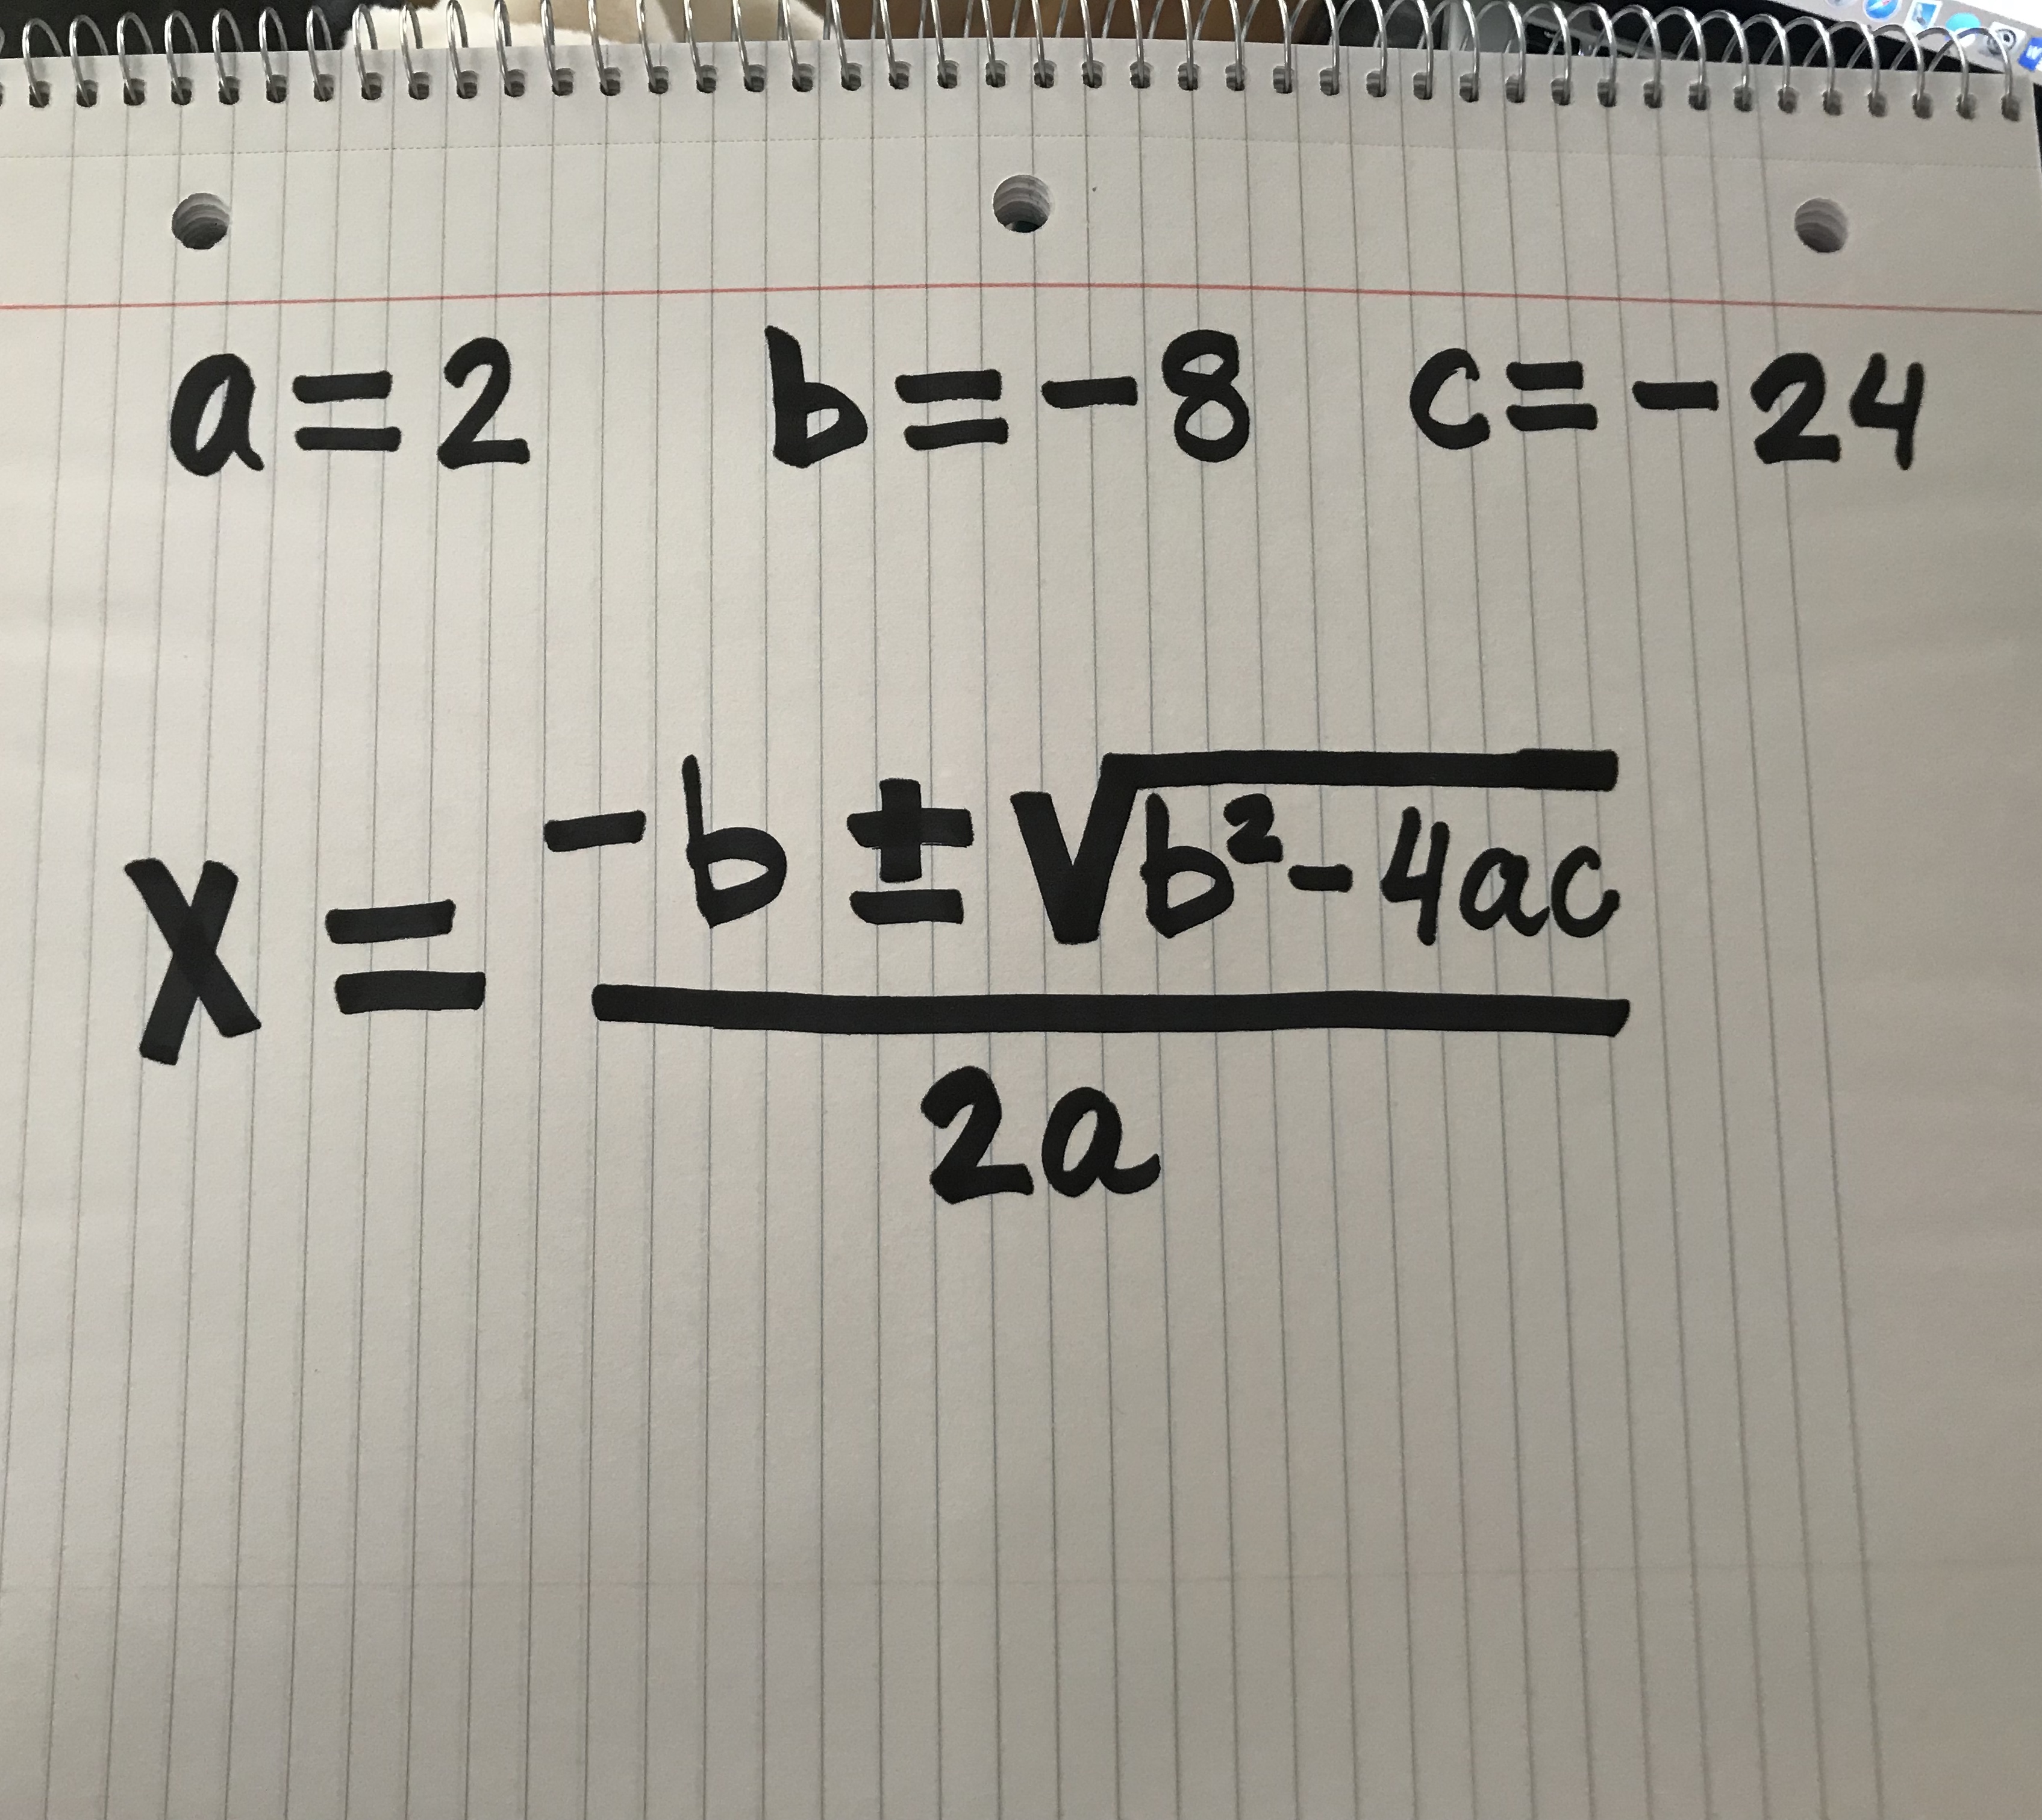 a = 2 b = -8 c = -24
x = -b ± √b² - 4ac
2a